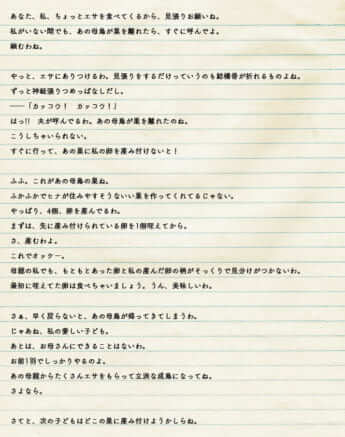 あなた、私、ちょっとエサを食べてくるから、見張りお願いね。
私がいない間でも、あの母鳥が巣を離れたら、すぐに呼んでよ。
頼むわね。
やっと、エサにありつけるわ。見張りをするだけっていうのも結構骨が折れるものよね。
ずっと神経張りつめっぱなしだし。
――「カッコウ！　カッコウ！」
はっ!!　夫が呼んでるわ。あの母鳥が巣を離れたのね。
こうしちゃいられない。
すぐに行って、あの巣に私の卵を産み付けないと！
ふふ。これがあの母鳥の巣ね。
ふかふかでヒナが住みやすそうないい巣を作ってくれてるじゃない。
やっぱり、4個、卵を産んでるわ。
まずは、先に産み付けられている卵を1個咥えてから。
さ、産むわよ。
これでオッケー。
母親の私でも、もともとあった卵と私の産んだ卵の柄がそっくりで見分けがつかないわ。
最初に咥えてた卵は食べちゃいましょう。うん、美味しいわ。
さぁ、早く戻らないと、あの母鳥が帰ってきてしまうわ。
じゃあね、私の愛しい子ども。
あとは、お母さんにできることはないわ。
お前1羽でしっかりやるのよ。
あの母親からたくさんエサをもらって立派な成鳥になってね。
さよなら。
さてと、次の子どもはどこの巣に産み付けようかしらね。